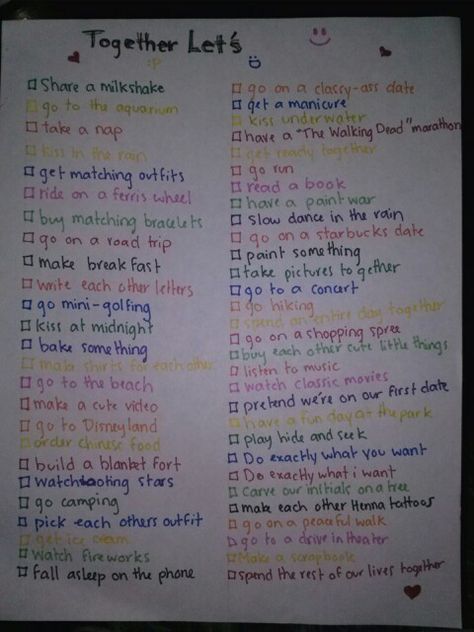 Together Let's
:P
:D
Share a milkshake
go to the aquarium
take a nap
kiss in the rain
get matching outfits
ride on a ferris wheel
buy matching bracelets
go on a road trip
make breakfast
write each other letters
go mini-golfing
kiss at midnight
bake something
make shirts for each other
go to the beach
make a cute video
go to Disneyland
order chinese food
build a blanket fort
watch stars
go camping
pick each others outfit
get ice cream
watch fireworks
fall asleep on the phone
go on a classy-ass date
get a manicure
kiss underwater
have a "The Walking Dead" marathon
get ready together
go run
read a book
have a paint war
slow dance in the rain
go on a starbucks date
paint something
take pictures together
go to a concert
go hiking
spend an entire day together
go on a shopping spree
buy each other cute little things
listen to music
watch classic movies
pretend we're on our first date
have a fun day at the park
play hide and seek
Do exactly what you want
Do exactly what i want
Carve our initials on a tree
make each other Henna tattoos
go on a peaceful walk
go to a drive in theater
Make a scrapbook
spend the rest of our lives together